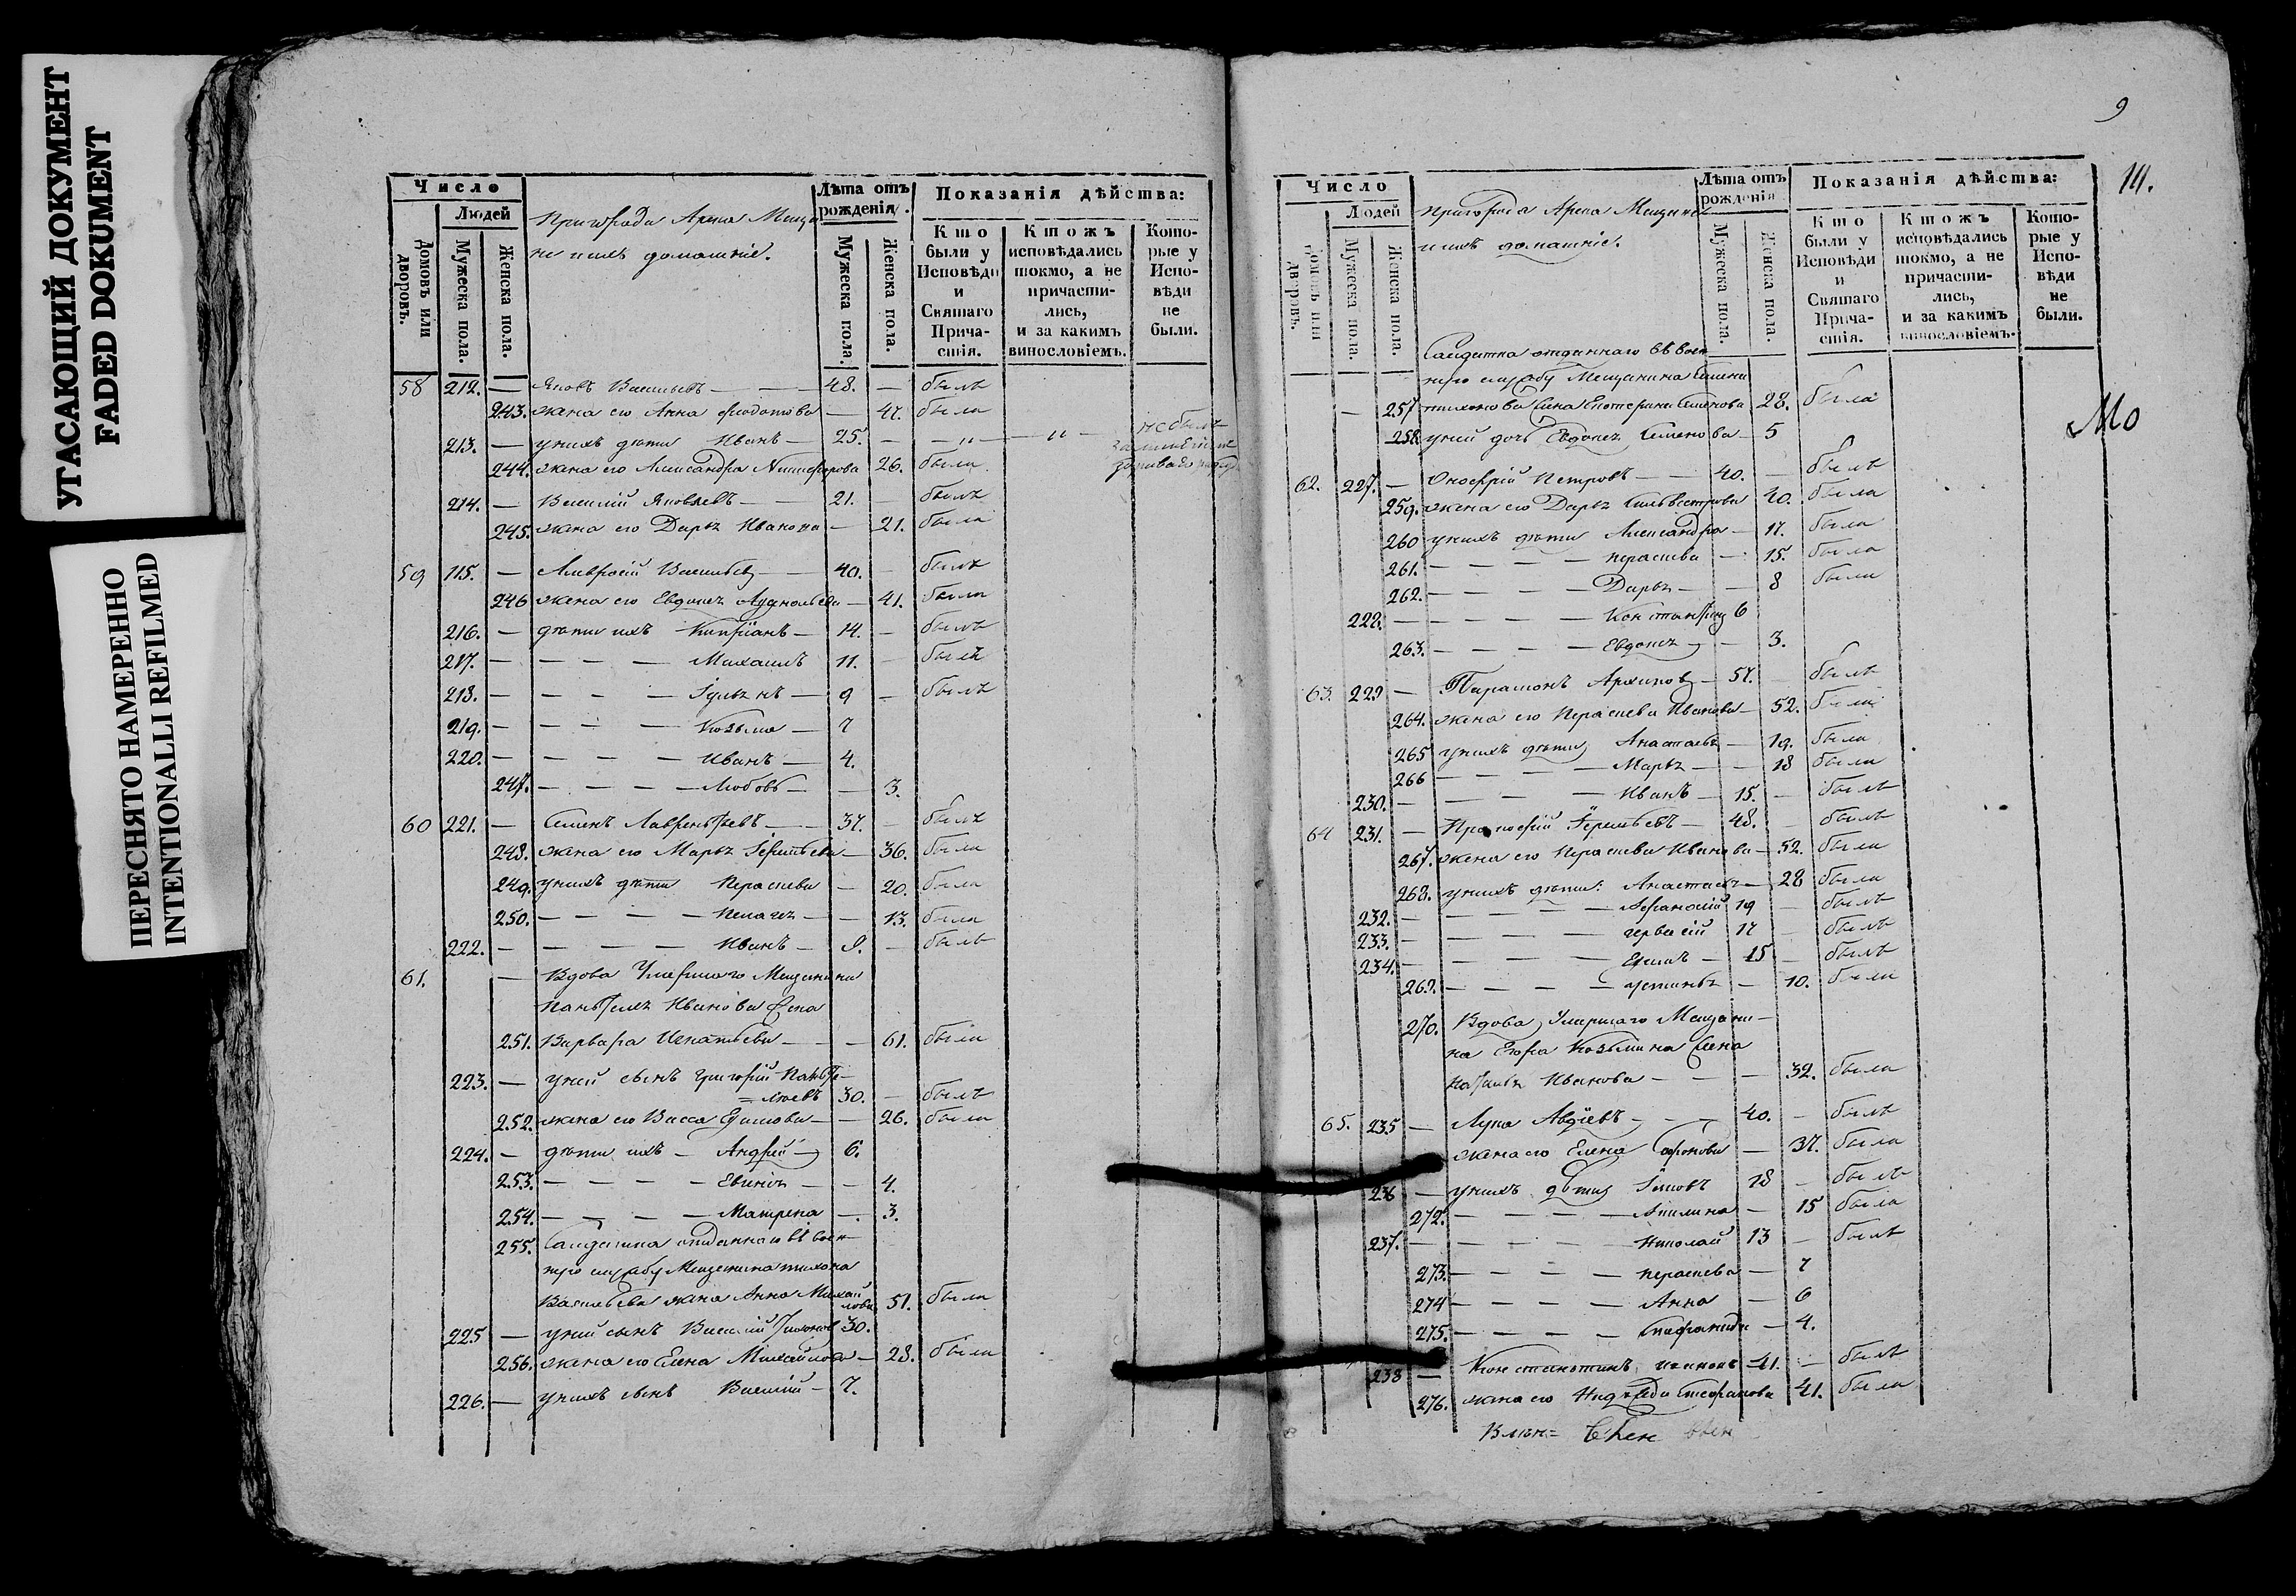 УГАСАЮЩИЙ ДОКУМЕНТ
FADED DOKUMENT
ПЕРЕСНЯТО НАМЕРЕННО
INTENTIONALLI REFILMED
Число
Людей
Домовъ или дворовъ.
Мужеска пола.
Женска пола.
Пригорода Арска Меща
не и ихъ домашніе.
Лѣта отъ рожденія.
Мужеска пола.
Женска пола.
Показанія дѣйства:
Кто были у Исповѣди и Святаго Причастія.
Ктожъ исповѣдались токмо, а не причастились, и за какимъ винословіемъ.
Которые у Исповѣди не были.
58 212. — Яковъ Васильевъ — 48. — былъ
243. жена его Анна Федотова — 47. была
213. — у нихъ дѣти Иванъ — 25. — — " — — " — не былъ
244. жена его Александра Никифорова 26. была
214. — Василій Яковлевъ — 21. — былъ
245. жена его Дарья Иванова — 21. была
59 115. — Амвросій Васильевъ — 40. — былъ
246 жена его Евдокея — 41. была
216. — дѣти ихъ Кипріянъ — 14. — былъ
217. — — — — Михаилъ 11. — былъ
218. — — — — Іульянъ — 9 — былъ
219. — — — — Козьма — 7
220. — — — — Иванъ — 4.
247. — — — — Любовь — — 3.
60 221. — Семенъ Лаврентьевъ — 37. — былъ
248. жена его Марья — 36. была
249. у нихъ дѣти Параскева — 20. была
250. — — — — Пелагея — — 13. была
222. — — — — Иванъ — 9. — былъ
61. — Вдова Умершаго Мещанина
Пантелея Иванова жена
251. Варвара Игнатьева — — 61. была
223. — у ней сынъ Григорій Пантѣ-
=леевъ 30. — былъ
252. жена его Васса Ефимова — — 26. была
224. — дѣти ихъ — Андрей — 6.
253. — — — — Евгенія — — 4.
254. — — — — Матрена — 3.
255. Салдатка отданнаго въ воен-
ную службу Мещанина Тихона
Васильева жена Анна Михай
лова 51. была
225 — у ней сынъ Василій Тихоновъ 30.
256. жена его Елена Михайлова — 28. была
226. — у нихъ сынъ Василій — 7.
9
111.
Мо
Число
Людей
Домовъ или дворовъ.
Мужеска пола.
Женска пола.
Пригорода Арска Мещане
и ихъ домашніе.
Лѣта отъ рожденія
Мужеска пола.
Женска пола.
Показанія дѣйства:
Кто были у Исповѣди и Святаго Причастія.
Ктожъ исповѣдались токмо, а не причастились, и за какимъ винословіемъ.
Которые у Исповѣди не были.
Салдатка отданнаго въ воен
ную службу Мещанина Семена
— 257 Тихонова жена Екатерина Семенова 28. была
258. у ней дочь Евдокея Семенова — 5
62. 227. — Онофрій Петровъ — 40. — былъ
259. жена его Дарья Сильвестрова 40. была
260 у нихъ дѣти Александра — 17. была
261. — — — — Параскева — 15. была
262. — — — — Дарья — — 8 была
228. — — — — — Константинъ 6
263. — — — — Евдокея — 3.
63. 229 — Парамонъ Архиповъ — 57. — былъ
264. жена его Параскева Иванова — 52. была
265 у нихъ дѣти Анастасья — 19. была
266 — — — — Марья — — 18 была
230. — — — — Иванъ — 15. — былъ
64 231. — Прокофій — 48. — былъ
267. жена его Параскева Иванова — 52. была
268. у нихъ дѣти: Анастасья — 28 была
232. — — — — Афанасій 19 — былъ
233. — — — — Гервасій 17 — былъ
234. — — — — Ефимъ — 15 — былъ
269. — — — — Устинья — 10. была
270. Вдова, Умершаго Мещани-
на Егора Козьмина жена
Наталья Иванова — — — 32. была
65. 235 — Лука Авдіевъ — — 40. — былъ
жена его Елена Сафонова — 37. была
236 — у нихъ дѣти Іаковъ 18 — былъ
272. — — — — Акилина — 15 была
237. — — — — Николай 13 — былъ
273. — — — — Параскева — 7
274 — — — — Анна — 6
275. — — — — Стефанида — 4.
238 — Константинъ 41. — былъ
276. жена его Надежда Стефанова 41. была